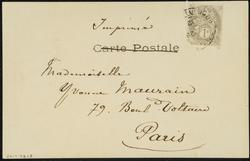 Imprimé
Carte Postale
Mademoiselle
Yvonne Maurain
79. Boul Voltaire
Paris